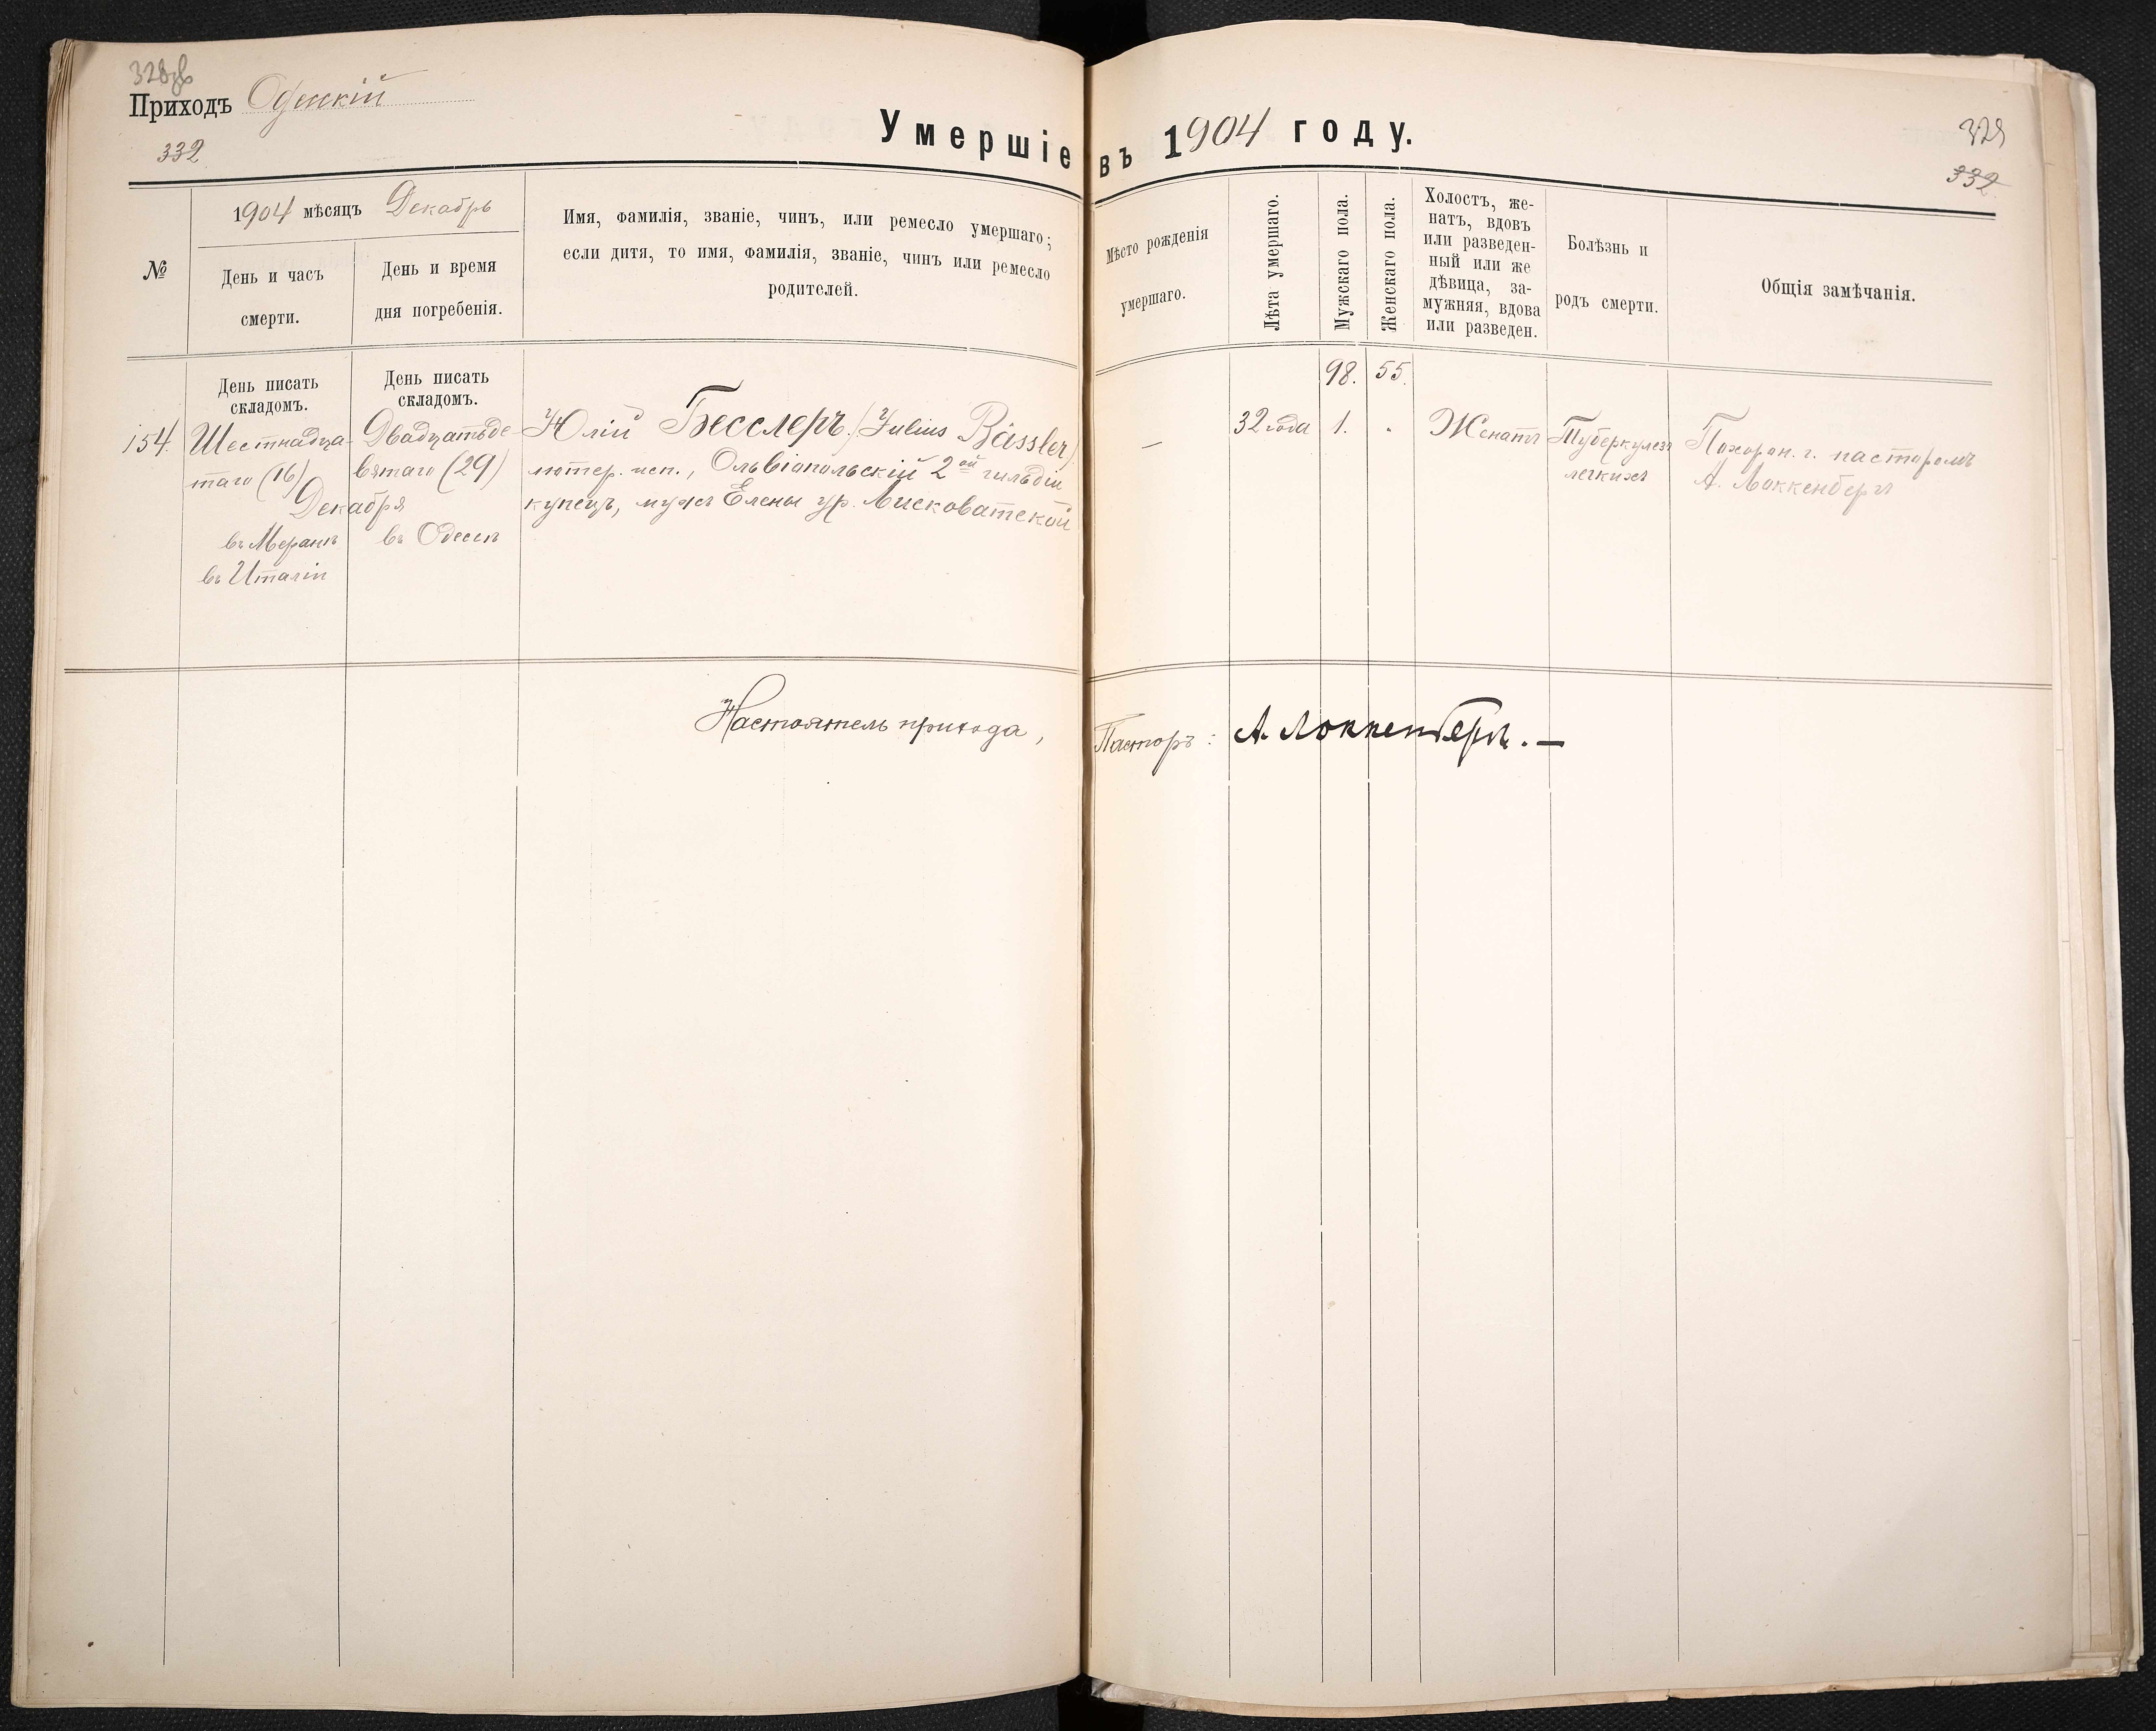 328об
Приходъ Одесскій
332
Умершіе въ 1904 году.
329
332
№
1904 мѣсяцъ Декабрь
День и часъ
смерти.
День и время
дня погребенія.
Имя, фамилія, званіе, чинъ, или ремесло умершаго;
если дитя, то имя, фамилія, званіе, чинъ или ремесло
родителей.
Мѣсто рожденія
умершаго.
Лѣта умершаго.
Мужскаго пола.
Женскаго пола.
Холостъ, же-
натъ, вдовъ
или разведен-
ный или же
дѣвица, за-
мужняя, вдова
или разведен.
Болѣзнь и
родъ смерти.
Общія замѣчанія.
День писать
складомъ.
День писать
складомъ.
98. 55.
154.
Шестнадца-
таго (16)
Двадцатьде-
вятаго (29)
Декабря
въ Меранѣ
въ Италіи
въ Одессѣ
Юлій Бесслеръ (Julius Bässler)
лютер. исп., Ольвіопольскій 2ой гильдіи
купецъ, мужъ Елены ур. Лисковатской
—
32 года
1.
"
Женатъ
Туберкулезъ
легкихъ
Похорон. г. пасторомъ
А. Локкенбергъ
Настоятель прихода,
Пасторъ: А. Локкенбергъ. —